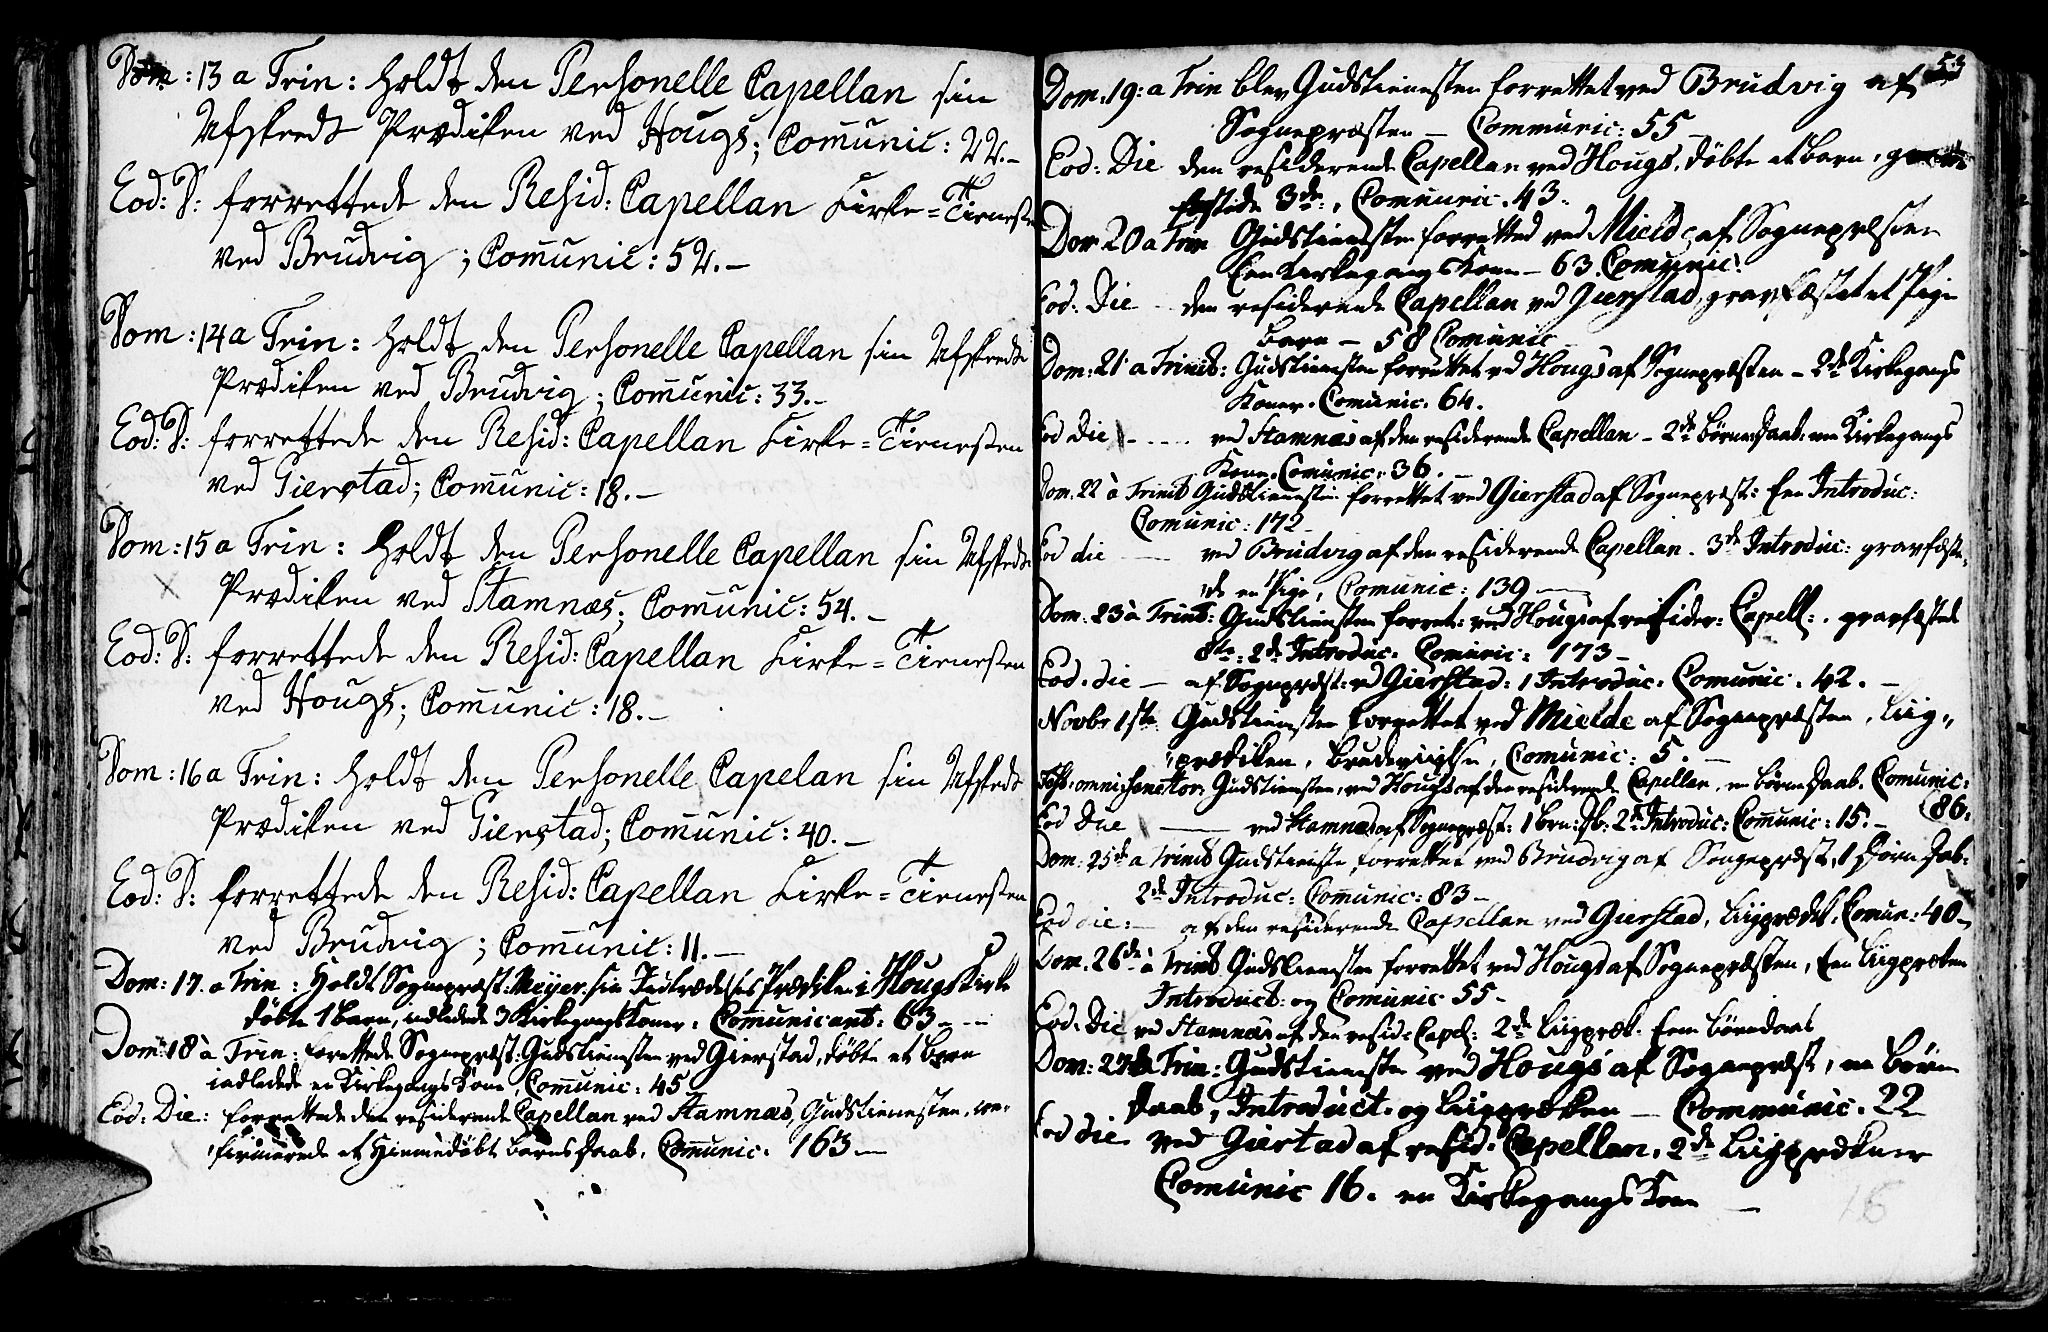 Dom: 13 a Trin: holdt den Personelle Capellan sin
Afskeeds Prædiken ved Hougs; Com̄unic: 22.-
Eod: D: forrettede den Resid: Capellan Kirke=Tienesten
ved Brudvig; Com̄unic: 52.-
Dom: 14 a Trin: holdt den Personelle Capellan sin Afskeeds
Prædiken ved Brudvig; Com̄unic: 33.-
Eod: D: forrettede den Resid: Capellan Kirke=Tienesten
ved Gierstad; Com̄unic: 18.-
Dom: 15 a Trin: holdt den Personelle Capellan sin Afskeeds
Prædiken ved Stamnæs; Com̄unic: 54.-
Eod: D: forrettede den Resid: Capellan Kirke=Tienesten
ved Hougs; Com̄unic: 18.-
Dom: 16 a Trin: holdt den Personelle Capelan sin Afskeeds
Prædiken ved Gierstad; Com̄unic: 40.-
Eod: D: forrettede den Resid: Capellan Kirke=Tienesten
ved Brudvig; Com̄unic: 11.-
Dom: 17. a Trin: Holdt Sognepræst: Meyer sin Indtrædelses Prædiken i Hougs Kirke
døbte 1 barn, indledede 3 Kirkegangs Koner. Com̄unicant: 63 - -
Dom: 18 à Trin: forettede Sognepræst: Gudstienesten ved Gierstad, døbte et barn
indledede en Kirkegangs Kone, Com̄unic: 45
Eod: Die: forrettede den residerende Capellan ved Stamnæs, Gudstienesten, con-
firmerede et Hiemmedøbt barns Daab. Com̄unic. 163 -
53
Dom: 19: a Trin blev Gudstienesten forrettet ved Brudvig af
Sognepræsten - Communic: 55
Eod: Die den residerende Capellan ved Hougs, døbte et barn,
fæstede 3de, Communic. 43.
Dom 20 a Trin Gudstienesten forretted ved Mielde af Sognepræsten
Een Kirkegangs Kone - 63. Comunic:
Eod: Die - den residerende Capellan ved Gierstad, gravfæstet et Pige
barn - 58 Comunic
Dom: 21 a Trinit: Gudstienesten forrettet ved Hougs af Sognepræsten - 2de Kirkegangs
Koner. Comunic. 64.
Eod die - - - - ved Stamnæs af den residerende Capellan - 2de børne Daab. en Kirkegangs
Kone. Comunic: 36. -
Dom. 22 à Trinit Gudstienesten forrettet ved Gierstad af Sognepræst: Een Introduc:
Comunic: 172 -
Eod die - ved Brudvig af den residerende Capellan. 3de Introduc: gravfæste,
de en Pige, Comunic: 139 -
Dom. 23 à Trinit: Gudstienesten forret: ved Hougs af residen: Capell:. gravfæstede
8te: 2de Introduc: Comunic: 173 -
Eod. die - af Sognepræst: ved Gierstad: 1 Introduc. Comunic. 42. -
Novbr 1ste Gudstienesten forrettet ved Mielde af Sognepræsten, Liig,,
prædiken, brudevielse, Comunic: 5. -
Fest: omni: Sanctor: Gudstienesten, ved Hougs af den residerende Capellan, en børne Daab. Comunic:
86.
Eod Die - ved Stamnæs af Sognepræst: 1 Brn: Db: 2de Introduc: Com̄unic: 15. -
Dom: 25de a Trinit Gudstieneste, forrettet ved Brudvig af Sognepræst, 1 børne Dab:
2de Introduc: Com̄unic: 83 -
Eod die: - af den residerende Capellan ved Gierstad, Liigprædik. Comun: 40 -
Dom. 26de à Trinit Gudstienesten forrettet ved Hougs af Sognepræsten, Een Liigpræken
Introduct: og Comunic 55 -
Eod: Die ved Stamnæs af den resid: Capel: 2de Liigpræk. Een børnedaab
Dom: 27de Trin: Gudstienesten ved Hougs af Sognepræst, en børne
Daab, Introduct. og Liigpræken - Communic. 22
Eod die ved Gierstad af resid. Capellan, 2de Liigprækener
Comunic 16. en Kirkegangs Kone -
16